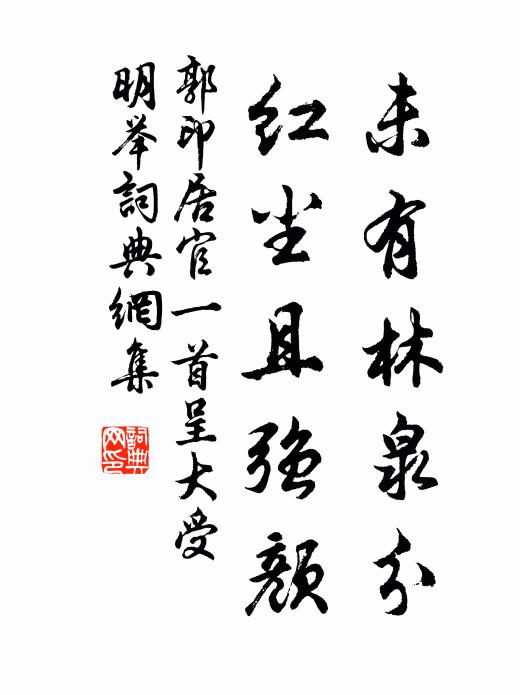 未有林泉分
红尘且強顏
郭印居官一首呈大受
明举詞典網集
詞典
网印